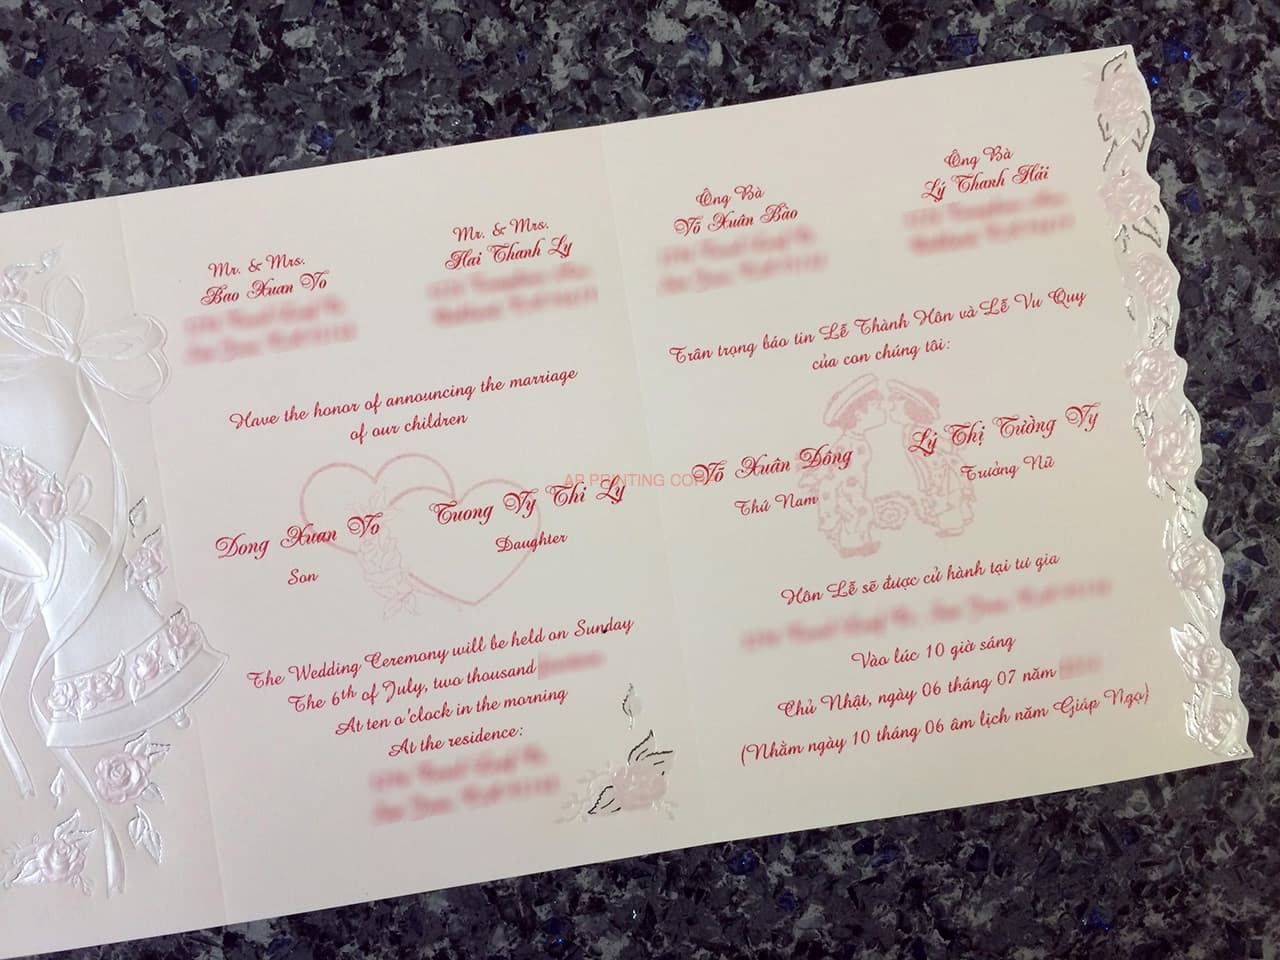 Mr. & Mrs.
Bao Xuan Vo
Mr. & Mrs.
Hai Thanh Ly
Have the honor of announcing the marriage
of our children
Dong Xuan Vo
Son
Tuong Vy Thi Ly
Daughter
The Wedding Ceremony will be held on Sunday
The 6th of July, two thousand
At ten o'clock in the morning
At the residence:
Ông Bà
Võ Xuân Bảo
Ông Bà
Lý Thanh Hải
Trân trọng báo tin Lễ Thành Hôn và Lễ Vu Quy
của con chúng tôi:
Võ Xuân Đông
Thứ Nam
Lý Thị Tường Vy
Trưởng Nữ
Hôn Lễ sẽ được cử hành tại tư gia
Vào lúc 10 giờ sáng
Chủ Nhật, ngày 06 tháng 07 năm
(Nhằm ngày 10 tháng 06 âm lịch năm Giáp Ngọ)
AP PRINTING CORP